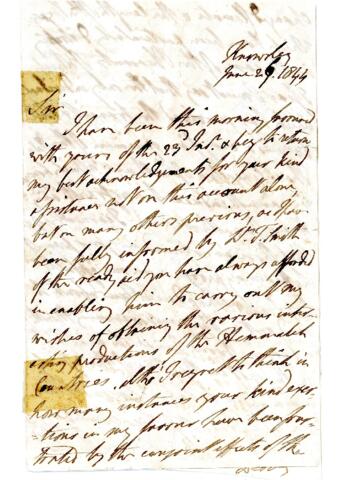 Knowsley
June 29. 1844
Sir
I have been this morning favored
with yours of the 23d Inst. & beg to return
my best acknowledgements for your kind
assistance not on this account alone
but on many others previous, as I have
been fully informed by Dr. J. Smith
of the ready aid you have always afforded
in enabling him to carry out my
wishes of obtaining the various inter-
esting productions of the
Countries, altho' I regret to think in
how many instances your kind exer-
tions in my favor have been frus-
trated by the conjoint effects of the